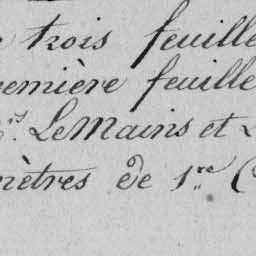 trois feuille
remière feuille
rs. LeMains et
mètres de 1re C